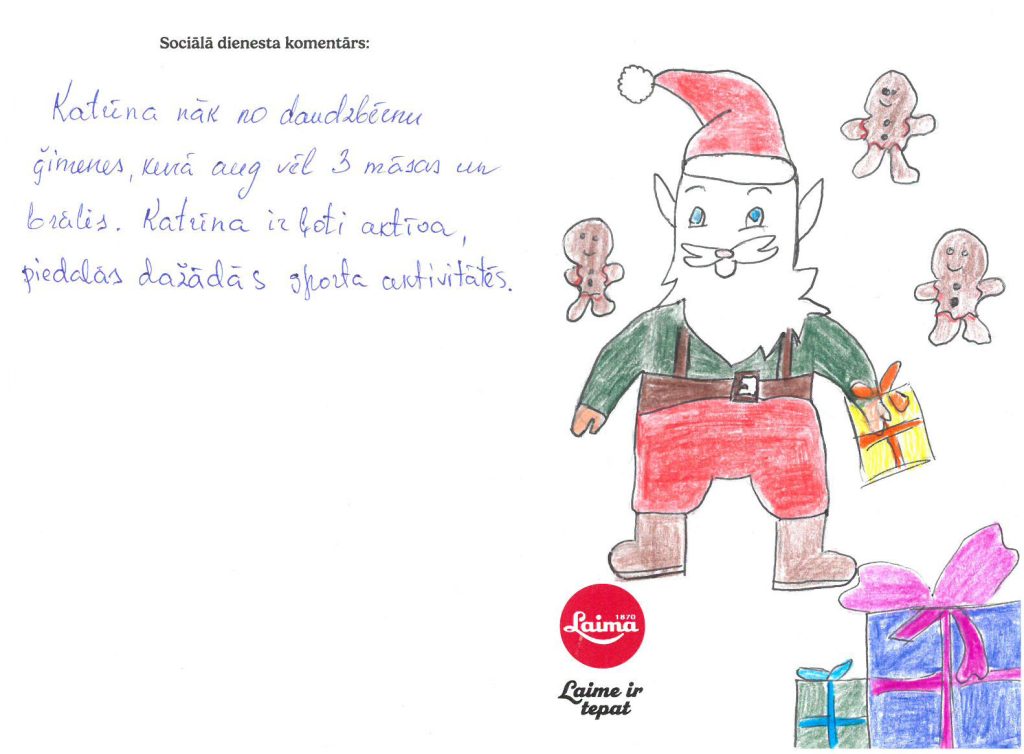 Sociālā dienesta komentārs:
Katrīna nāk no daudzbērnu
ģimenes, kurā aug vēl 3 māsas un
brālis. Katrīna ir ļoti aktīva,
piedalās dažādās sporta aktivitātēs.
1870
Laima
Laime ir
tepat